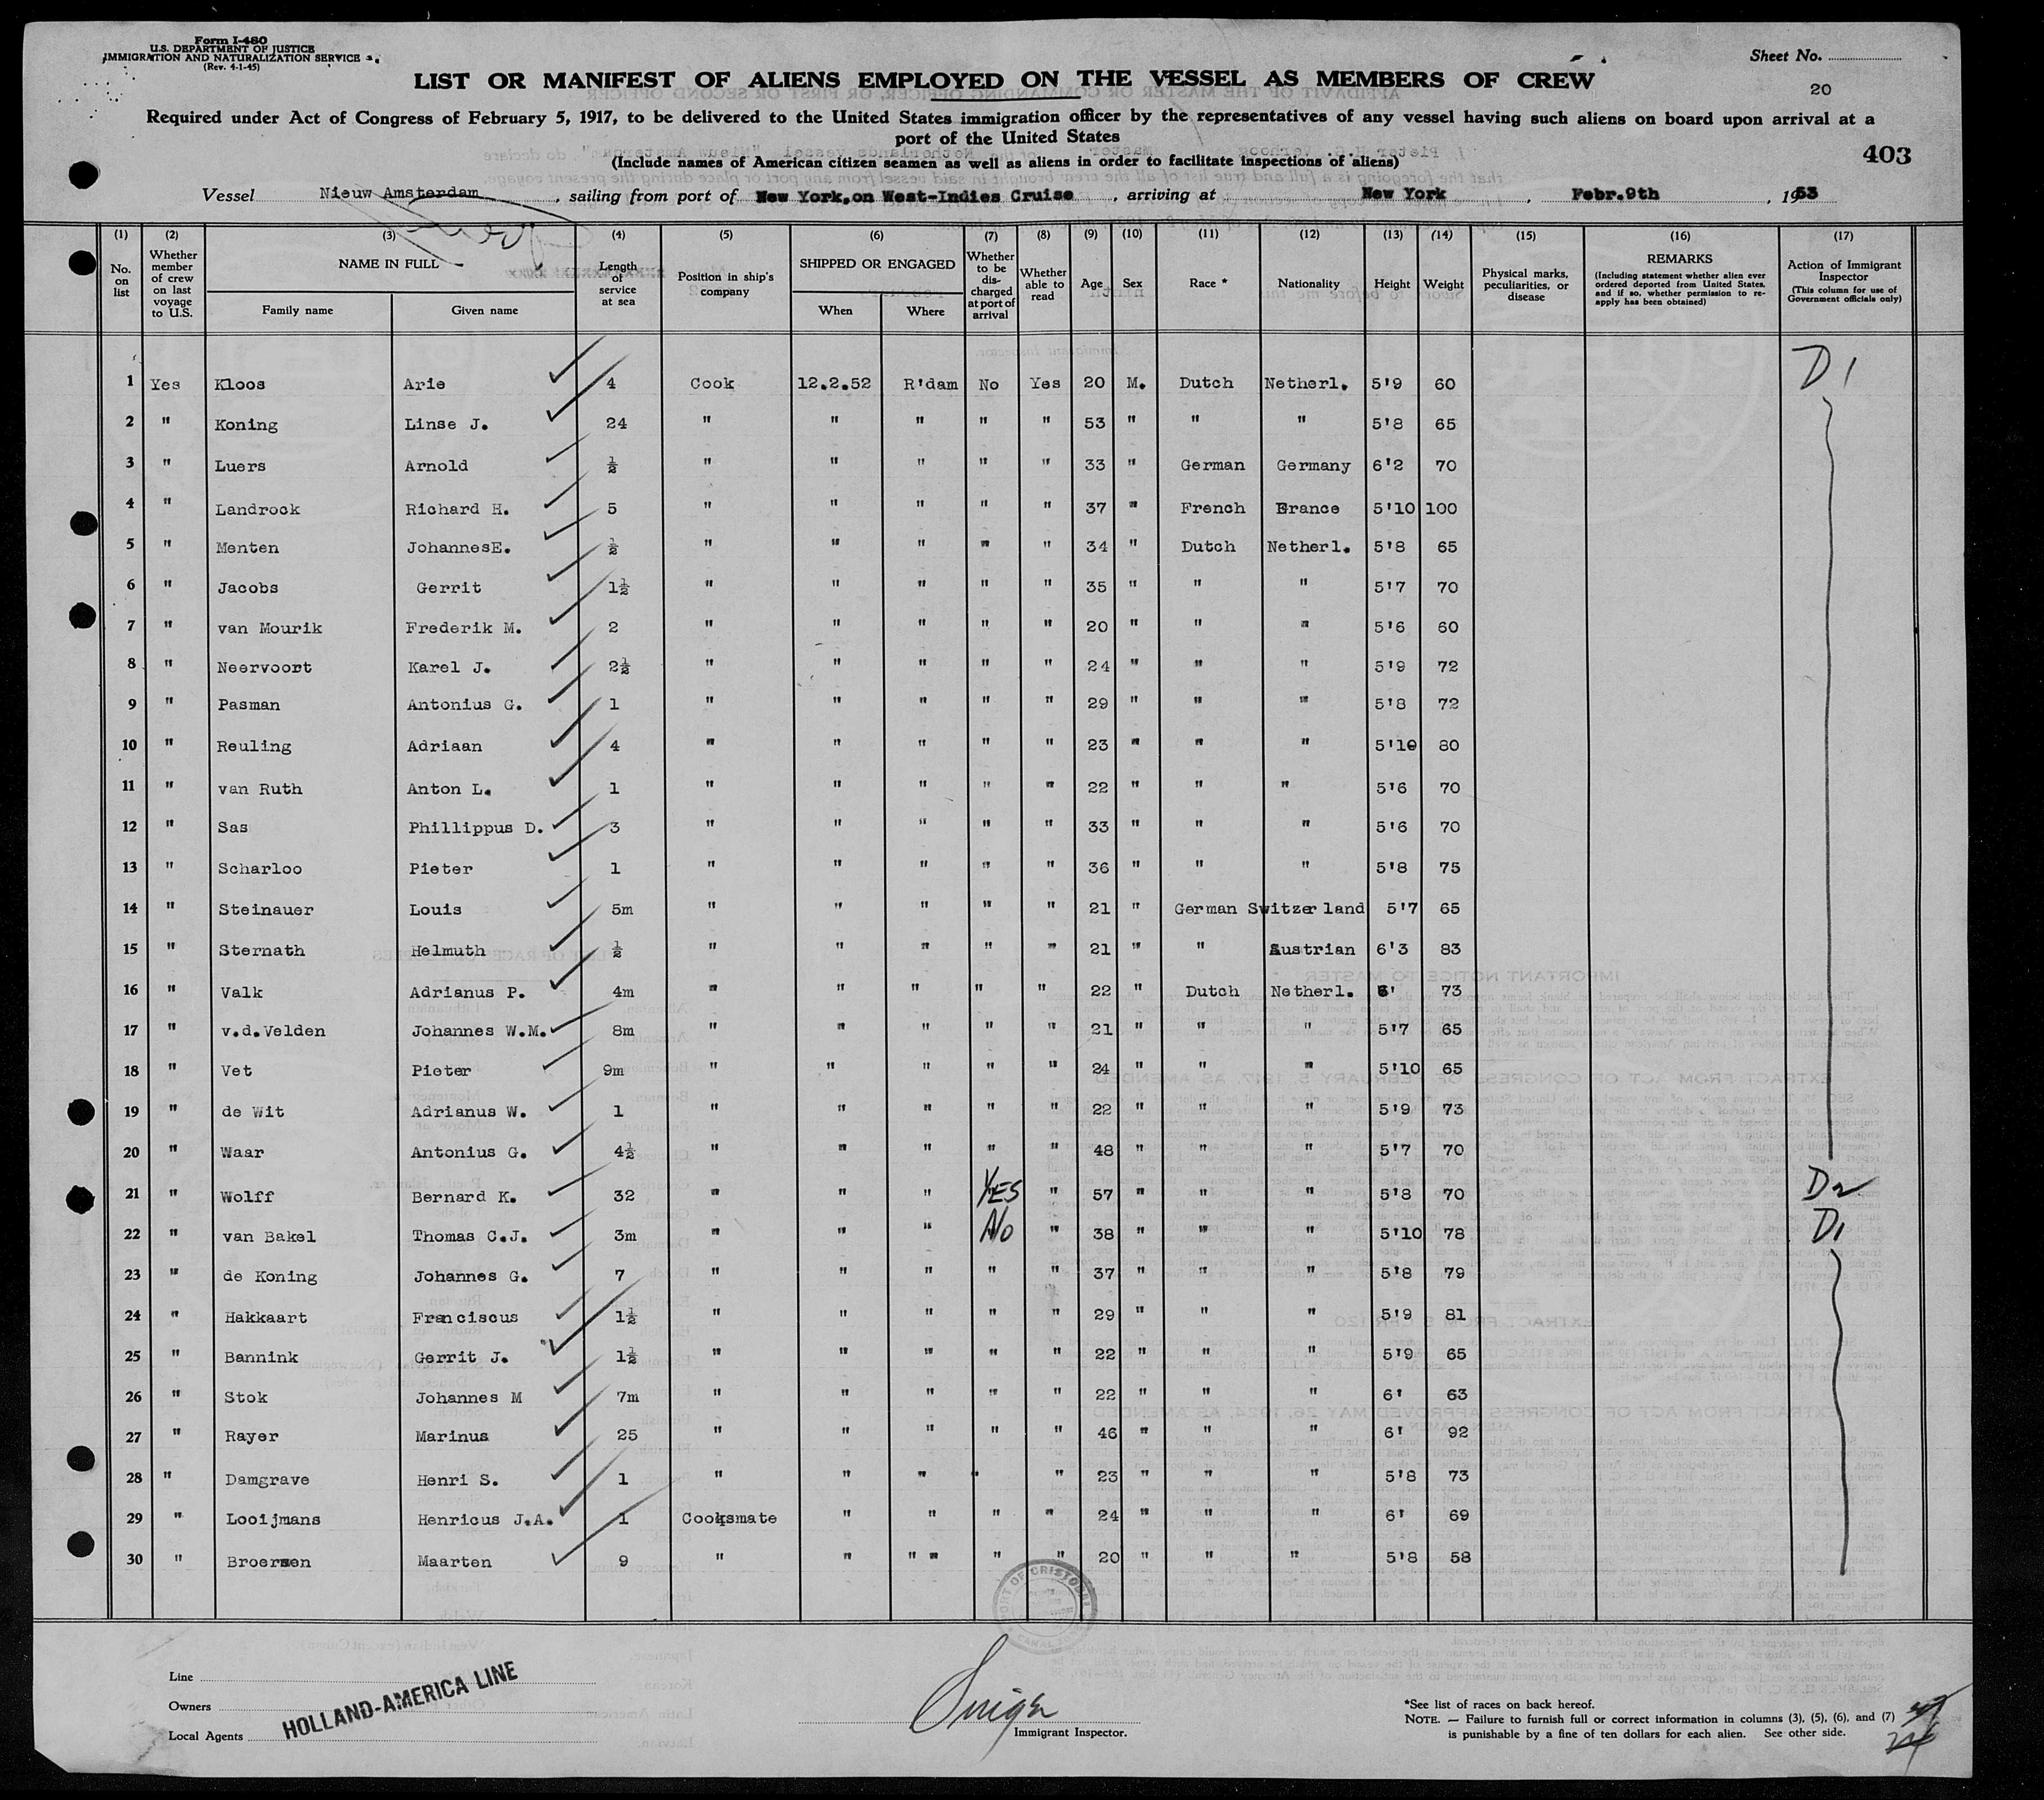 Form I-480
U.S. DEPARTMENT OF JUSTICE
IMMIGRATION AND NATURALIZATION SERVICE
(Rev. 4-1-45)
Sheet No.
20
LIST OR MANIFEST OF ALIENS EMPLOYED ON THE VESSEL AS MEMBERS OF CREW
Required under Act of Congress of February 5, 1917, to be delivered to the United States immigration officer by the representatives of any vessel having such aliens on board upon arrival at a
port of the United States
(Include names of American citizen seamen as well as aliens in order to facilitate inspections of aliens)
403
Vessel Nieuw Amsterdam, sailing from port of New York, on West-Indies Cruise, arriving at New York, Febr.9th, 1953
(1) No. on list (2) Whether member of crew on last voyage to U.S. (3) NAME IN FULL Family name Given name (4) Length of service at sea (5) Position in ship's company (6) SHIPPED OR ENGAGED When Where (7) Whether to be discharged at port of arrival (8) Whether able to read (9) Age (10) Sex (11) Race * (12) Nationality (13) Height (14) Weight (15) Physical marks, peculiarities, or disease (16) REMARKS (Including statement whether alien ever ordered deported from United States, and if so, whether permission to re-apply has been obtained) (17) Action of Immigrant Inspector (This column for use of Government officials only)
1 Yes Kloos Arie 4 Cook 12.2.52 R'dam No Yes 20 M. Dutch Netherl. 5'9 60 D1
2 " Koning Linse J. 24 " " " " " 53 " " " 5'8 65
3 " Luers Arnold ½ " " " " " 33 " German Germany 6'2 70
4 " Landrock Richard H. 5 " " " " " 37 " French France 5'10 100
5 " Menten JohannesE. ½ " " " " " 34 " Dutch Netherl. 5'8 65
6 " Jacobs Gerrit 1½ " " " " " 35 " " " 5'7 70
7 " van Mourik Frederik M. 2 " " " " " 20 " " " 5'6 60
8 " Neervoort Karel J. 2½ " " " " " 24 " " " 5'9 72
9 " Pasman Antonius G. 1 " " " " " 29 " " " 5'8 72
10 " Reuling Adriaan 4 " " " " " 23 " " " 5'10 80
11 " van Ruth Anton L. 1 " " " " " 22 " " " 5'6 70
12 " Sas Phillippus D. 3 " " " " " 33 " " " 5'6 70
13 " Scharloo Pieter 1 " " " " " 36 " " " 5'8 75
14 " Steinauer Louis 5m " " " " " 21 " German Switzerland 5'7 65
15 " Sternath Helmuth ½ " " " " " 21 " " Austrian 6'3 83
16 " Valk Adrianus P. 4m " " " " " 22 " Dutch Netherl. 6' 73
17 " v.d.Velden Johannes W.M. 8m " " " " " 21 " " " 5'7 65
18 " Vet Pieter 9m " " " " " 24 " " " 5'10 65
19 " de Wit Adrianus W. 1 " " " " " 22 " " " 5'9 73
20 " Waar Antonius G. 4½ " " " " " 48 " " " 5'7 70
21 " Wolff Bernard K. 32 " " " YES " 57 " " " 5'8 70 D2
22 " van Bakel Thomas C.J. 3m " " " No " 38 " " " 5'10 78 D1
23 " de Koning Johannes G. 7 " " " " " 37 " " " 5'8 79
24 " Hakkaart Franciscus 1½ " " " " " 29 " " " 5'9 81
25 " Bannink Gerrit J. 1½ " " " " " 22 " " " 5'9 65
26 " Stok Johannes M 7m " " " " " 22 " " " 6' 63
27 " Rayer Marinus 25 " " " " " 46 " " " 6' 92
28 " Damgrave Henri S. 1 " " " " " 23 " " " 5'8 73
29 " Looijmans Henricus J.A. 1 Cooksmate " " " " 24 " " " 6' 69
30 " Broersen Maarten 9 " " " " " " 20 " " " 5'8 58
PORT OF CRISTOBAL
CANAL
Line
Owners
Local Agents
HOLLAND-AMERICA LINE
Immigrant Inspector.
*See list of races on back hereof.
NOTE. — Failure to furnish full or correct information in columns (3), (5), (6), and (7)
is punishable by a fine of ten dollars for each alien. See other side.